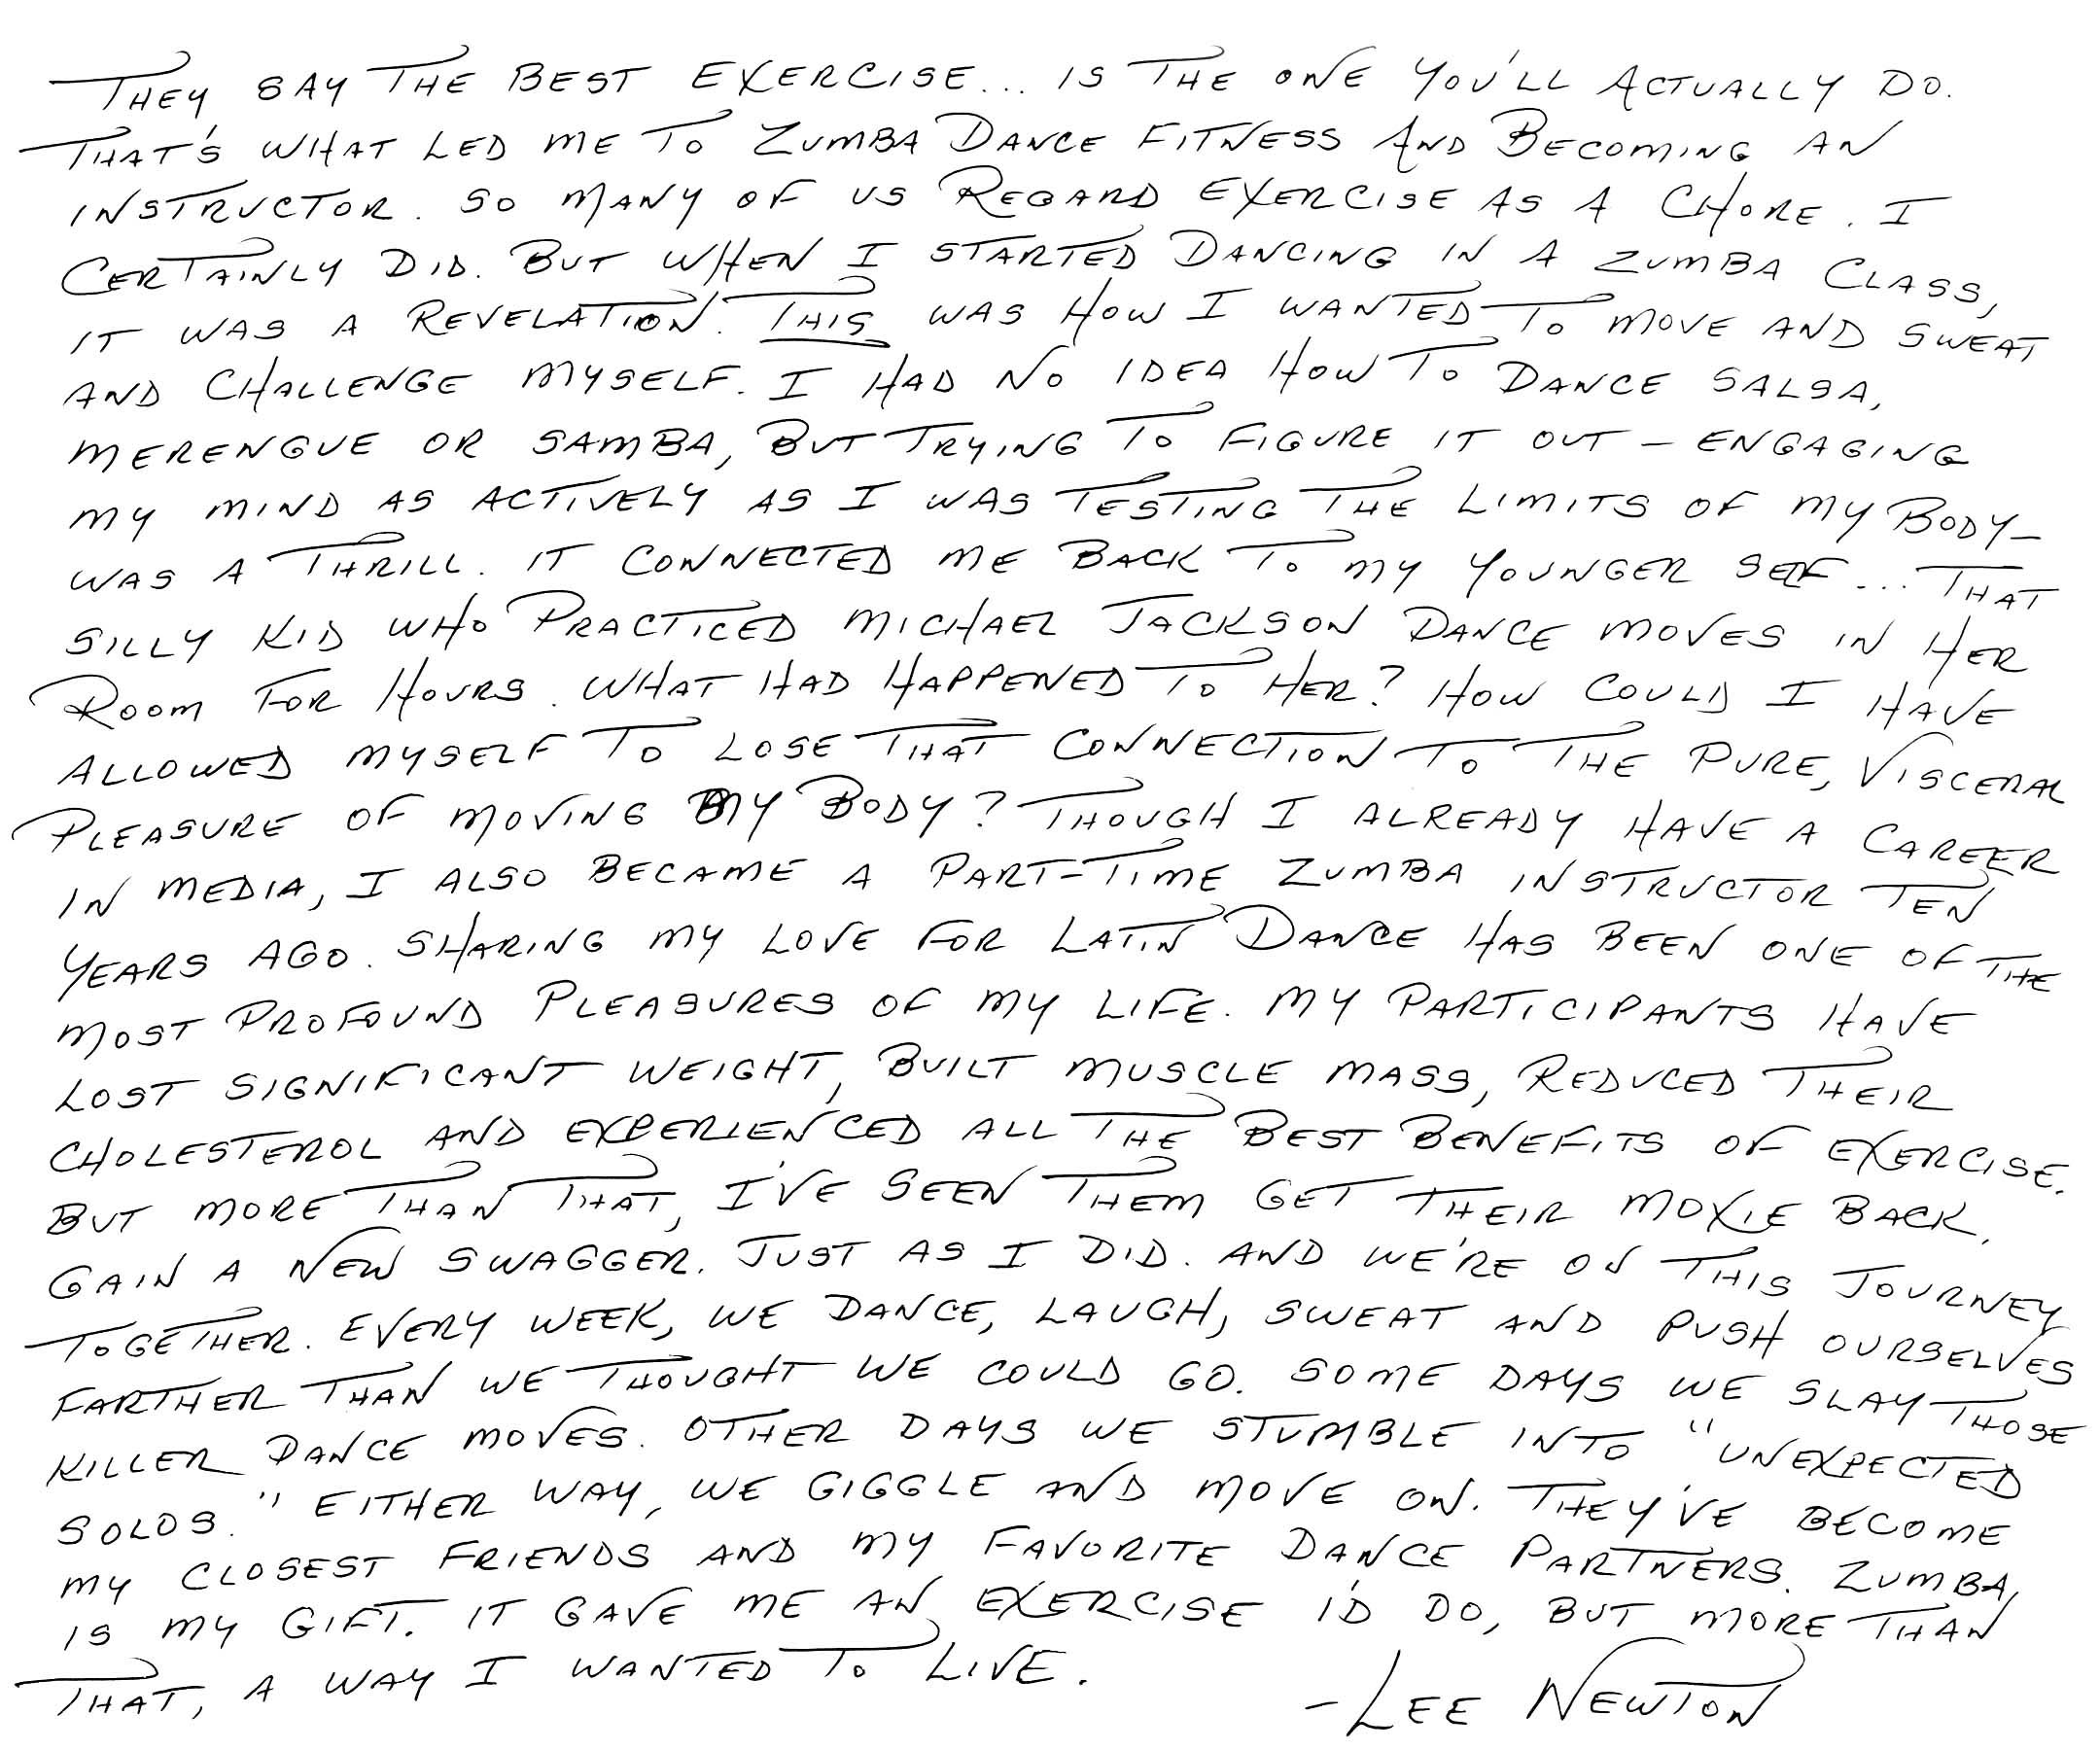 THEY SAY THE BEST EXERCISE... IS THE ONE YOU'LL ACTUALLY DO.
THAT'S WHAT LED ME TO ZUMBA DANCE FITNESS AND BECOMING AN
INSTRUCTOR. SO MANY OF US REGARD EXERCISE AS A CHORE. I
CERTAINLY DID. BUT WHEN I STARTED DANCING IN A ZUMBA CLASS,
IT WAS A REVELATION. THIS WAS HOW I WANTED TO MOVE AND SWEAT
AND CHALLENGE MYSELF. I HAD NO IDEA HOW TO DANCE SALSA,
MERENGUE OR SAMBA, BUT TRYING TO FIGURE IT OUT – ENGAGING
MY MIND AS ACTIVELY AS I WAS TESTING THE LIMITS OF MY BODY –
WAS A THRILL. IT CONNECTED ME BACK TO MY YOUNGER SELF... THAT
SILLY KID WHO PRACTICED MICHAEL JACKSON DANCE MOVES IN HER
ROOM FOR HOURS. WHAT HAD HAPPENED TO HER? HOW COULD I HAVE
ALLOWED MYSELF TO LOSE THAT CONNECTION TO THE PURE, VISCERAL
PLEASURE OF MOVING MY BODY? THOUGH I ALREADY HAVE A CAREER
IN MEDIA, I ALSO BECAME A PART-TIME ZUMBA INSTRUCTOR TEN
YEARS AGO. SHARING MY LOVE FOR LATIN DANCE HAS BEEN ONE OF THE
MOST PROFOUND PLEASURES OF MY LIFE. MY PARTICIPANTS HAVE
LOST SIGNIFICANT WEIGHT, BUILT MUSCLE MASS, REDUCED THEIR
CHOLESTEROL AND EXPERIENCED ALL THE BEST BENEFITS OF EXERCISE.
BUT MORE THAN THAT, I'VE SEEN THEM GET THEIR MOXIE BACK.
GAIN A NEW SWAGGER. JUST AS I DID. AND WE'RE ON THIS JOURNEY
TOGETHER. EVERY WEEK, WE DANCE, LAUGH, SWEAT AND PUSH OURSELVES
FARTHER THAN WE THOUGHT WE COULD GO. SOME DAYS WE SLAY THOSE
KILLER DANCE MOVES. OTHER DAYS WE STUMBLE INTO "UNEXPECTED
SOLOS." EITHER WAY, WE GIGGLE AND MOVE ON. THEY'VE BECOME
MY CLOSEST FRIENDS AND MY FAVORITE DANCE PARTNERS. ZUMBA,
IS MY GIFT. IT GAVE ME AN EXERCISE I'D DO, BUT MORE THAN
THAT, A WAY I WANTED TO LIVE.
– LEE NEWTON